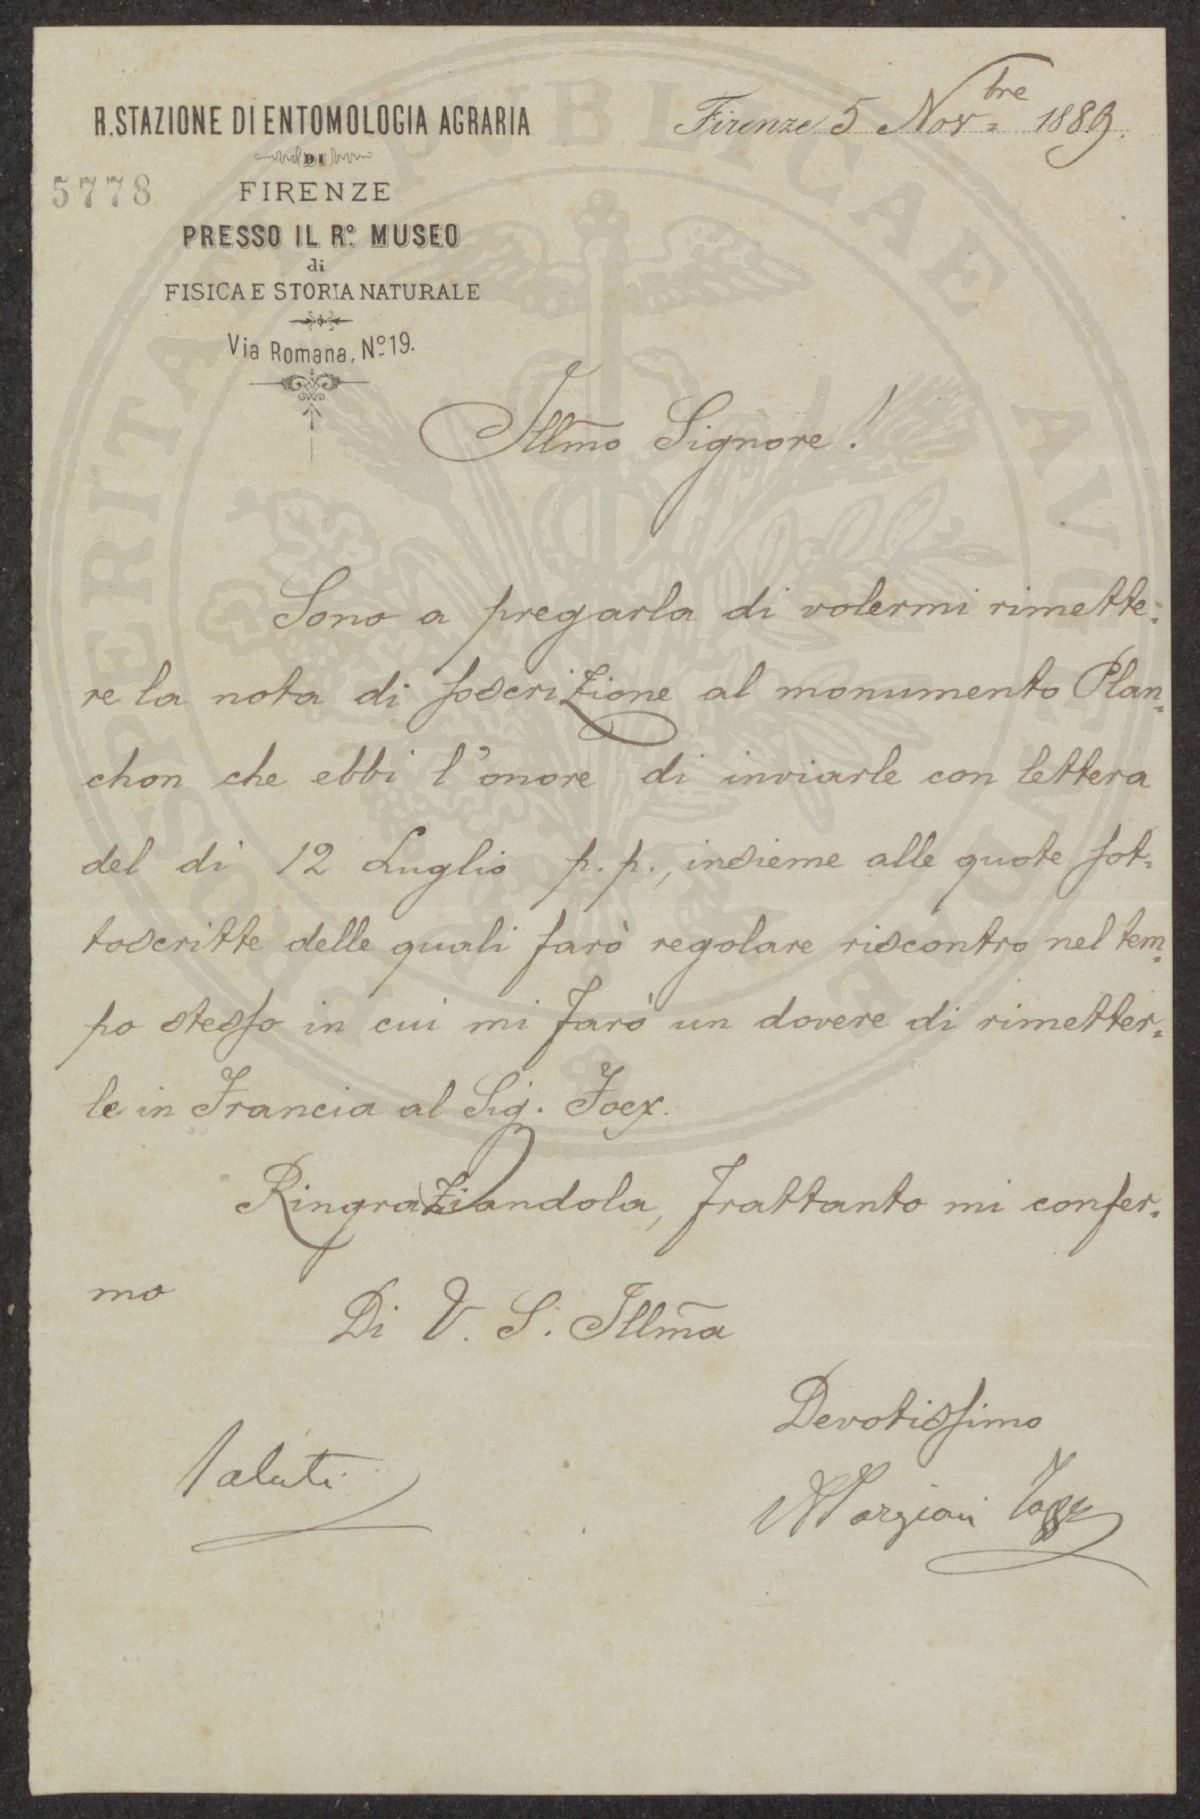 R. STAZIONE DI ENTOMOLOGIA AGRARIA
DI
5778
FIRENZE
PRESSO IL R.º MUSEO
di
FISICA E STORIA NATURALE
Via Romana, Nº 19.
Firenze 5 Nov.bre 1889.
Illmo Signore!
Sono a pregarla di volermi rimette=
re la nota di soscrizione al monumento Plan=
chon che ebbi l'onore di inviarle con lettera
del dì 12 Luglio p.p., insieme alle quote sot=
toscritte delle quali farò regolare riscontro nel tem=
po stesso in cui mi farò un dovere di rimetter=
le in Francia al Sig. Foex.
Ringraziandola, frattanto mi confer=
mo
Di V. S. Illma
Devotissimo
Saluti
Targioni Tozz
PROSPERITATI PUBLICAE AVGENDAE